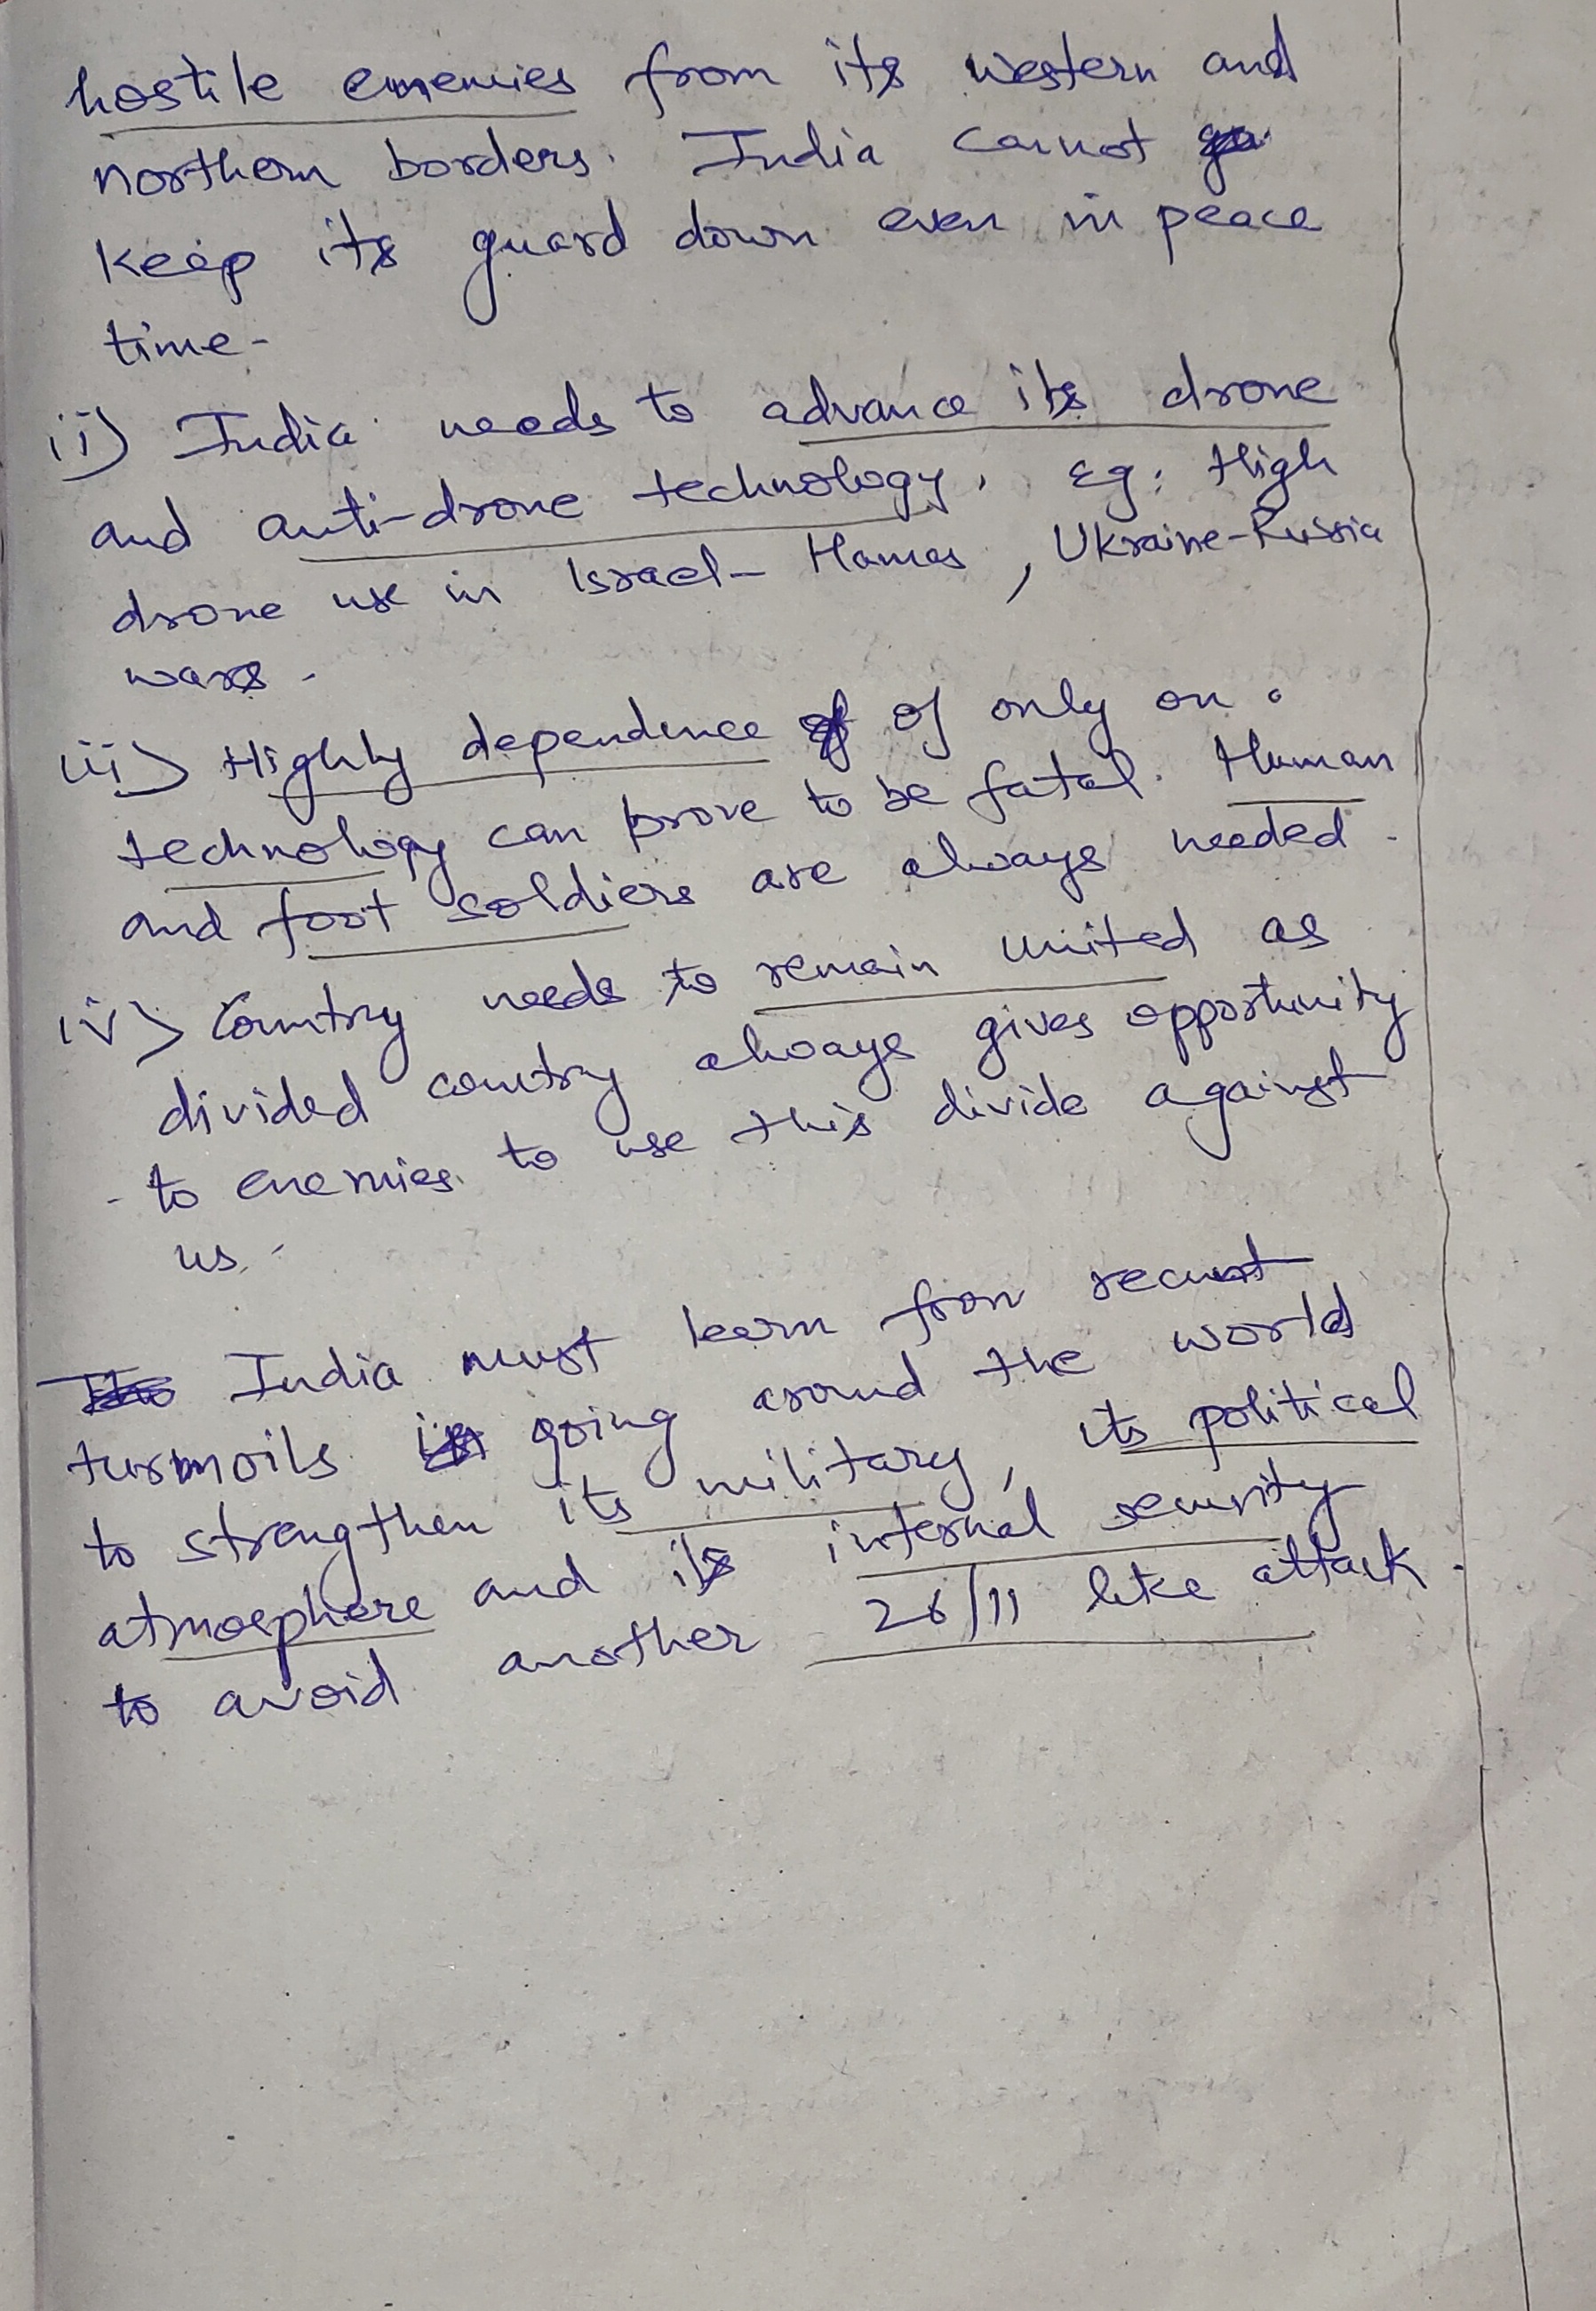 hostile enemies from its western and
northern borders. India cannot
keep its guard down even in peace
time.
ii) India needs to advance its drone
and anti-drone technology. Eg: High
drone use in Israel-Hamas, Ukraine-Russia
wars.
iii) Highly dependence of only on
technology can prove to be fatal. Human
and foot soldiers are always needed.
iv) Country needs to remain united as
divided country always gives opportunity
to enemies to use this divide against
us.
India must learn from recent
turmoils going around the world
to strengthen its military, its political
atmosphere and its internal security
to avoid another 26/11 like attack.